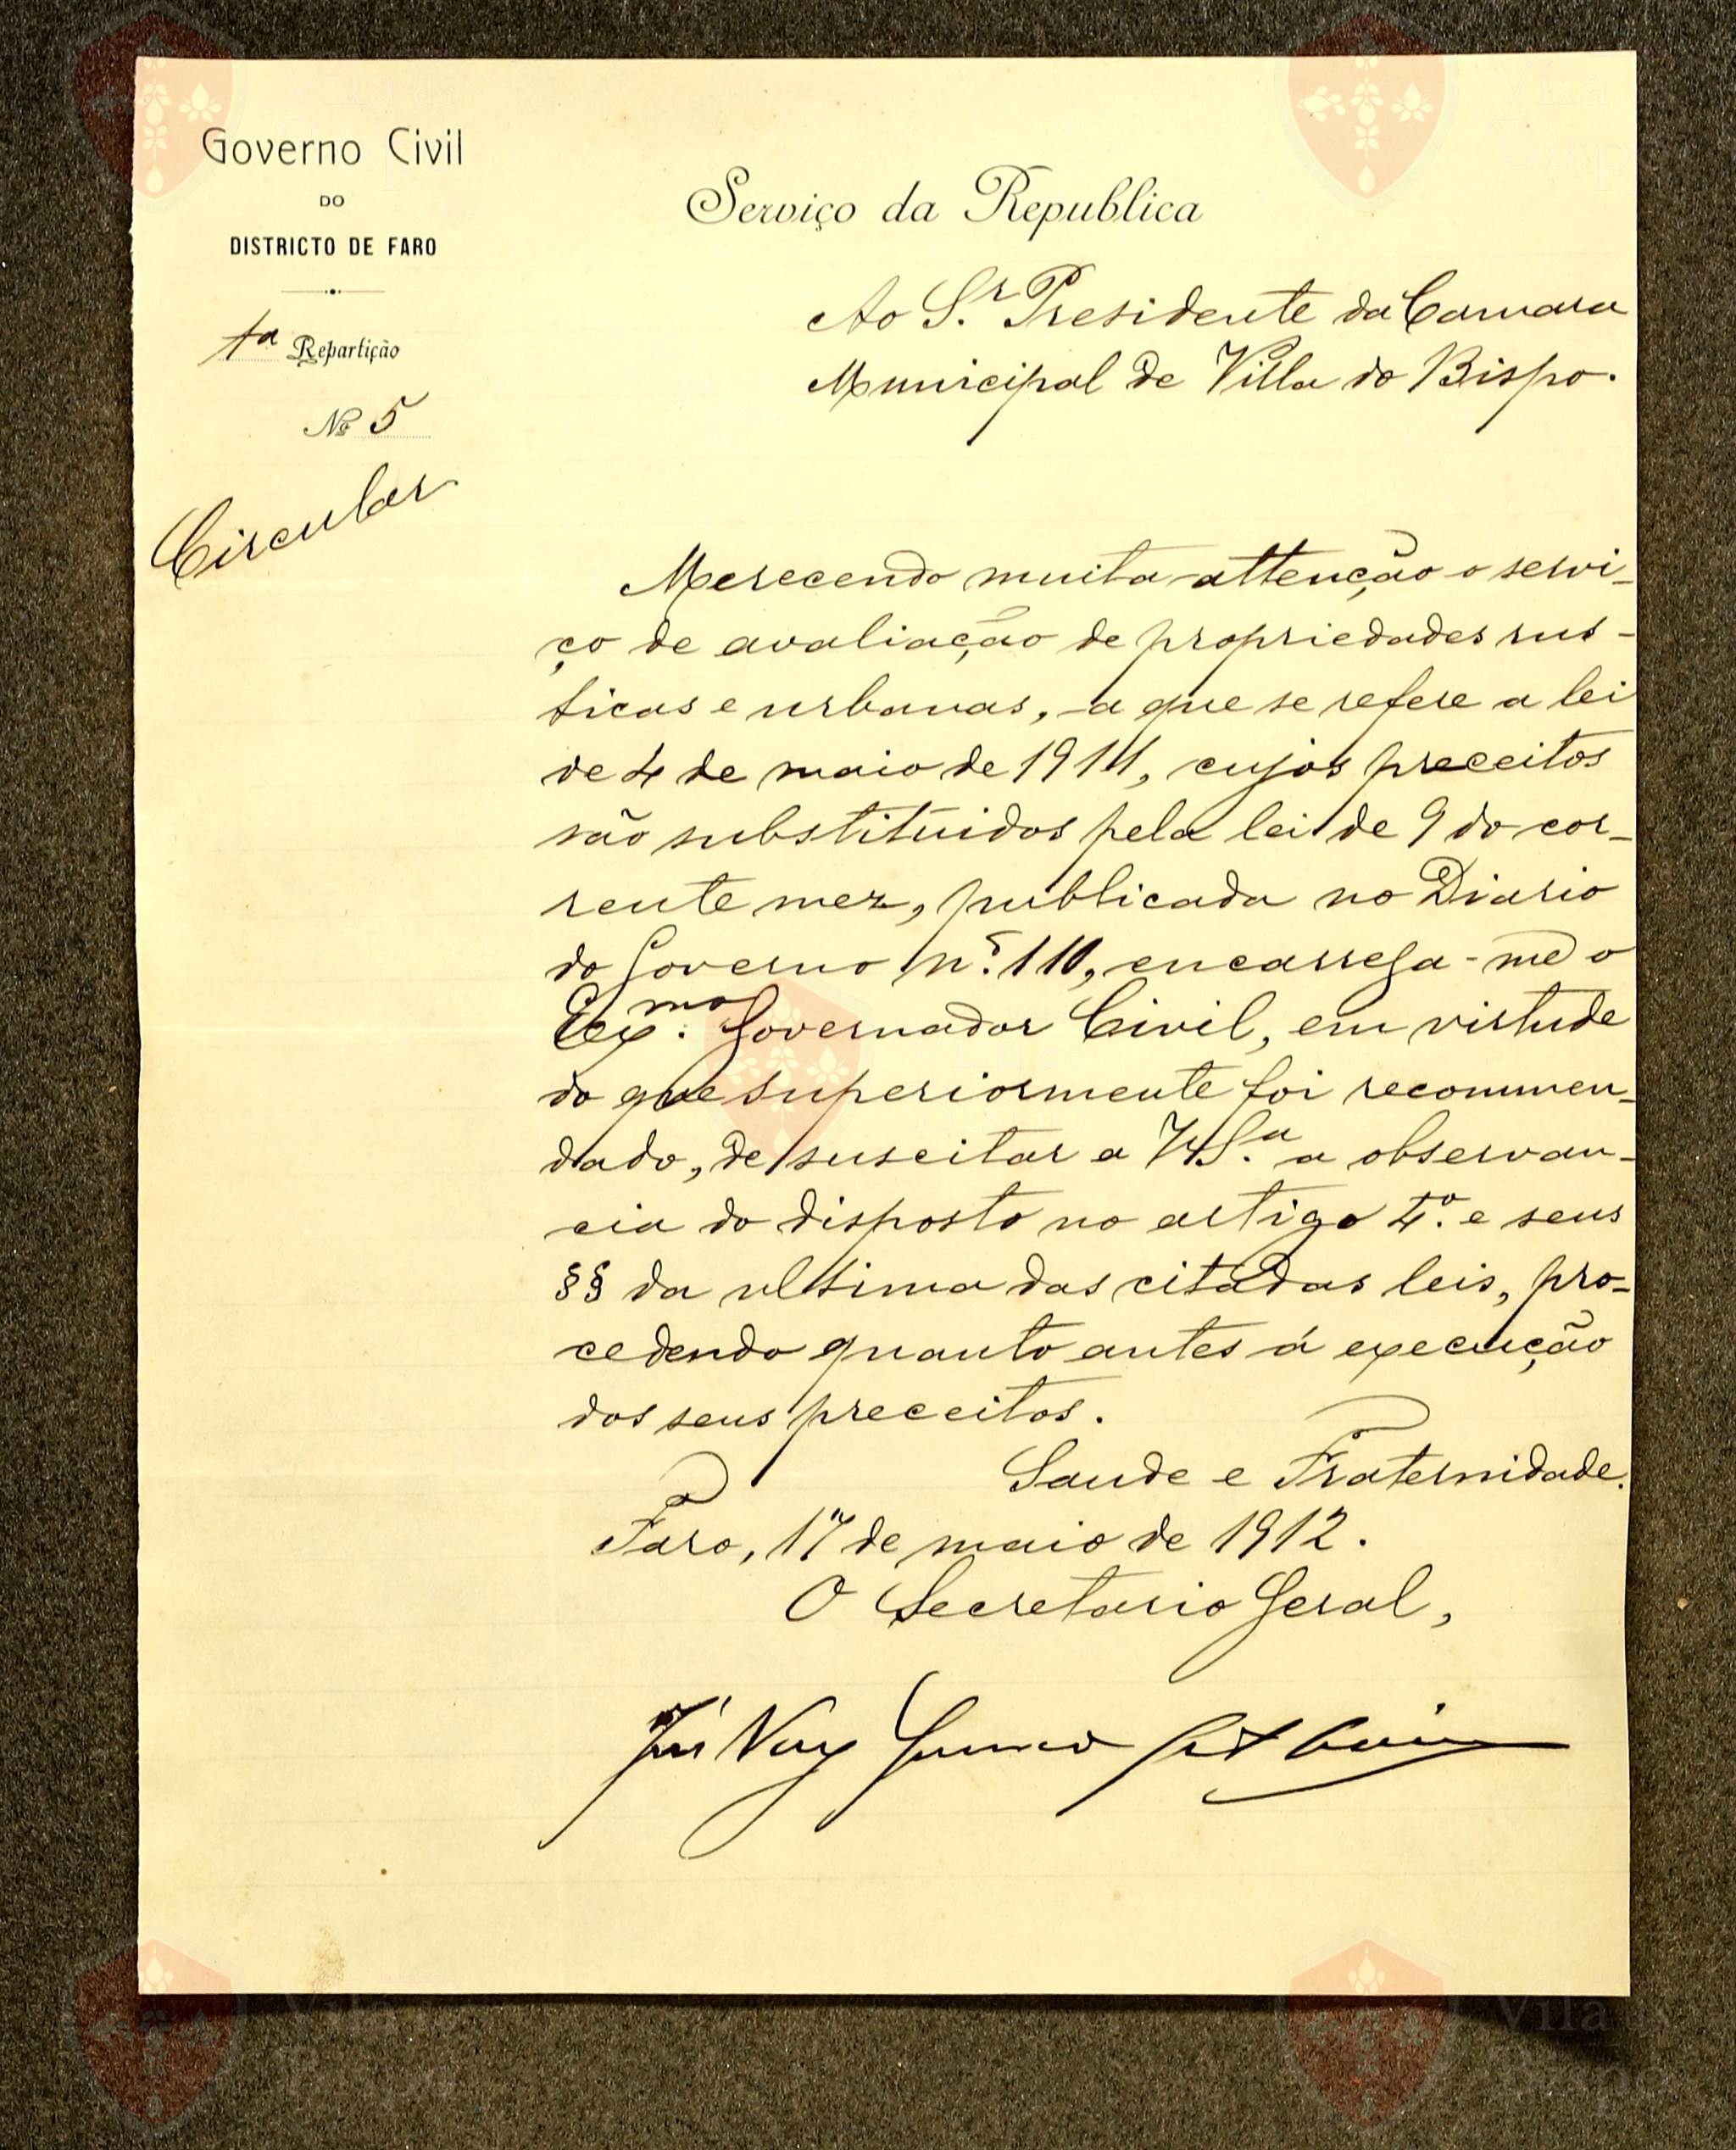 Governo Civil
DO
DISTRICTO DE FARO
1ª Repartição
Nº 5
Circular
Serviço da Republica
Ao Sr. Presidente da Camara
Municipal de Villa do Bispo.
Merecendo muita attenção o servi-
ço de avaliação de propriedades rus-
ticas e urbanas, a que se refere a lei
de 4 de maio de 1911, cujos preceitos
são substituidos pela lei de 9 do cor-
rente mez, publicada no Diario
do Governo n.º 110, encarrega-me o
Exmo. Governador Civil, em virtude
do que superiormente foi recommen-
dado, de suscitar a V. S.ª a observan-
cia do disposto no artigo 4.º e seus
§§ da ultima das citadas leis, pro-
cedendo quanto antes á execução
dos seus preceitos.
Saude e Fraternidade.
Faro, 17 de maio de 1912.
O Secretario Geral,
José Vaz
Vila